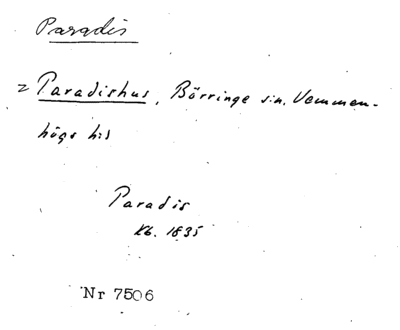 Paradis
= Paradishus, Börringe sn. Vemmen-
högs hd
Paradis
Kb. 1835
Nr 7506